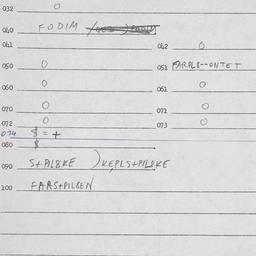 032 0
040 FODIM
041 042 0
050 0 051 FARPLB--ONTET
060 0 061 0
070 0 071 0
072 0 073 0
074 $ = +
080 $
090 S+PILBKE )KEPLS+PILBKE
100 FARS+PILBEN